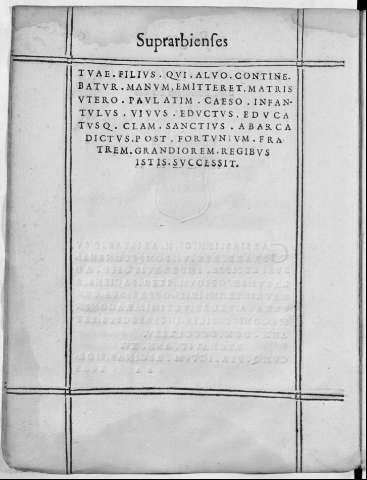 Suprarbienses
TVAE. FILIVS. QVI. ALVO. CONTINE.
BATVR. MANVM. EMITTERET. MATRIS
VTERO. PAVLATIM. CAESO. INFAN-
TVLVS. VIVVS. EDVCTVS. EDVCA
TVSQ. CLAM. SANCTIVS. ABARCA
DICTVS. POST. FORTVNIVM. FRA
TREM. GRANDIOREM. REGIBVS
ISTIS. SVCCESSIT.